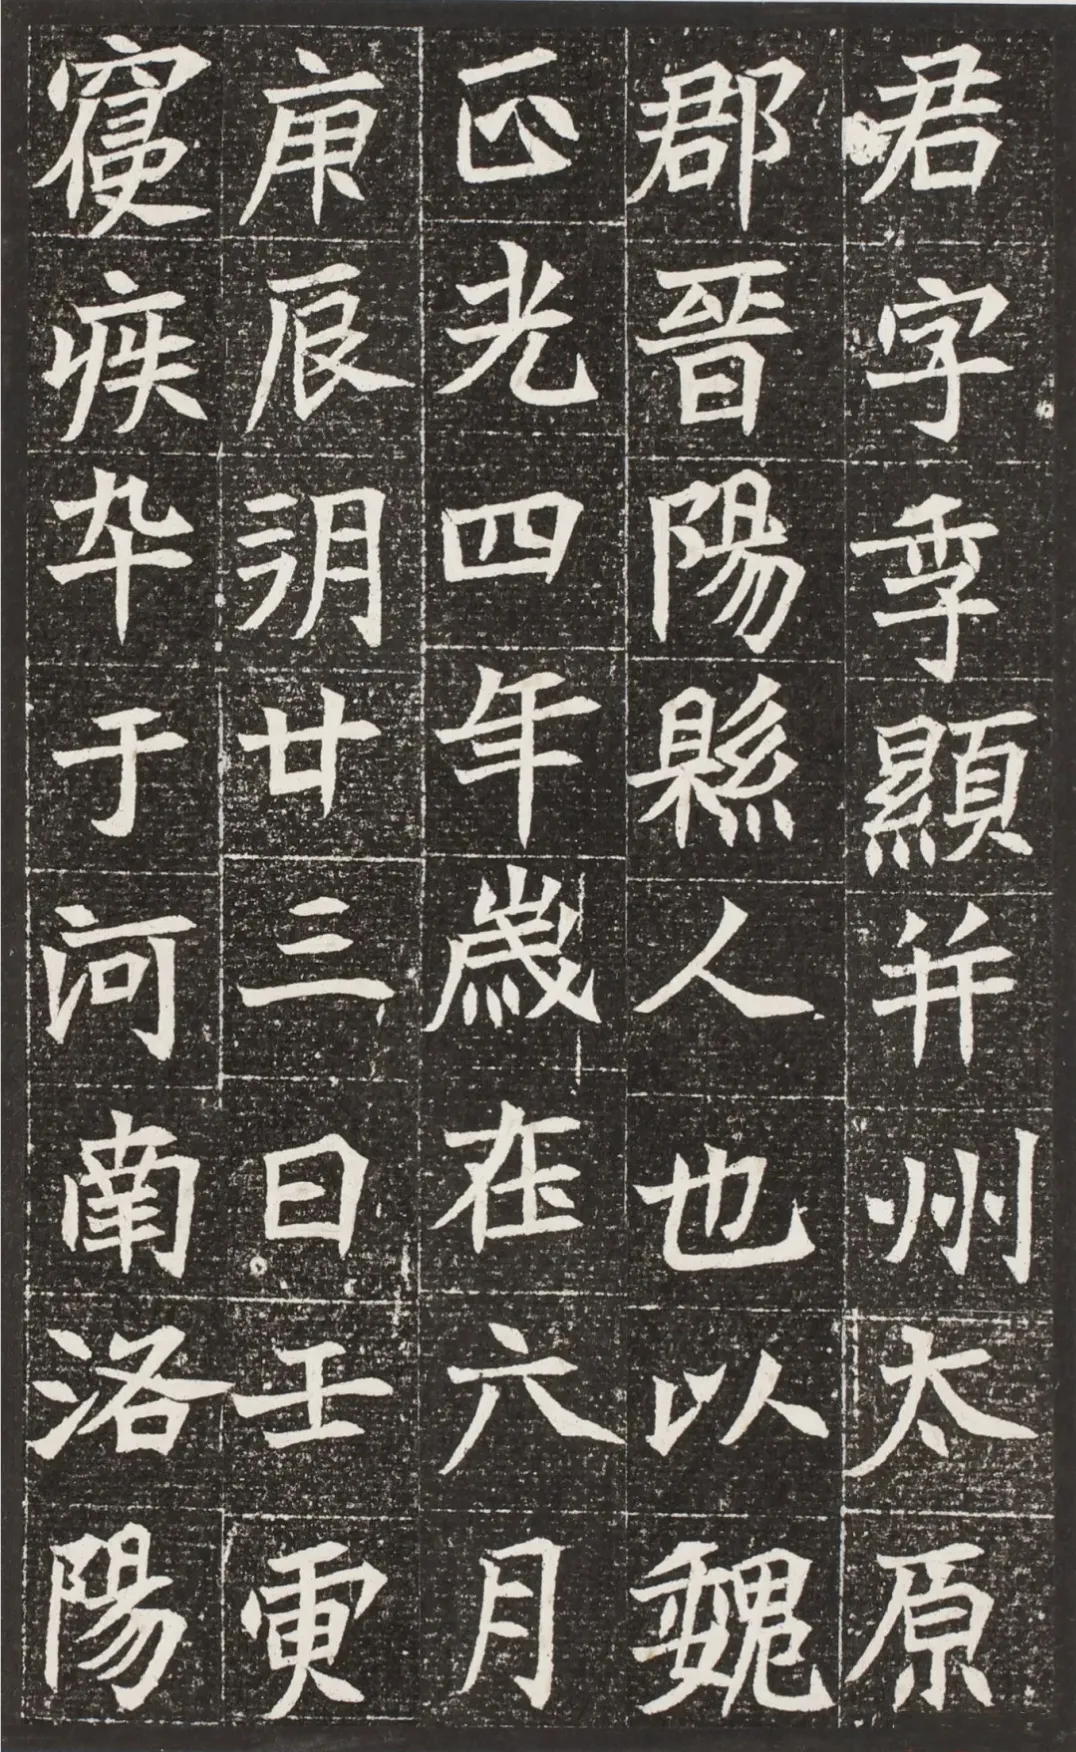 君字季顯并州太原
郡晉陽縣人也以魏
正光四年歲在六月
庚辰朔廿三日壬寅
寑疾卒于河南洛陽